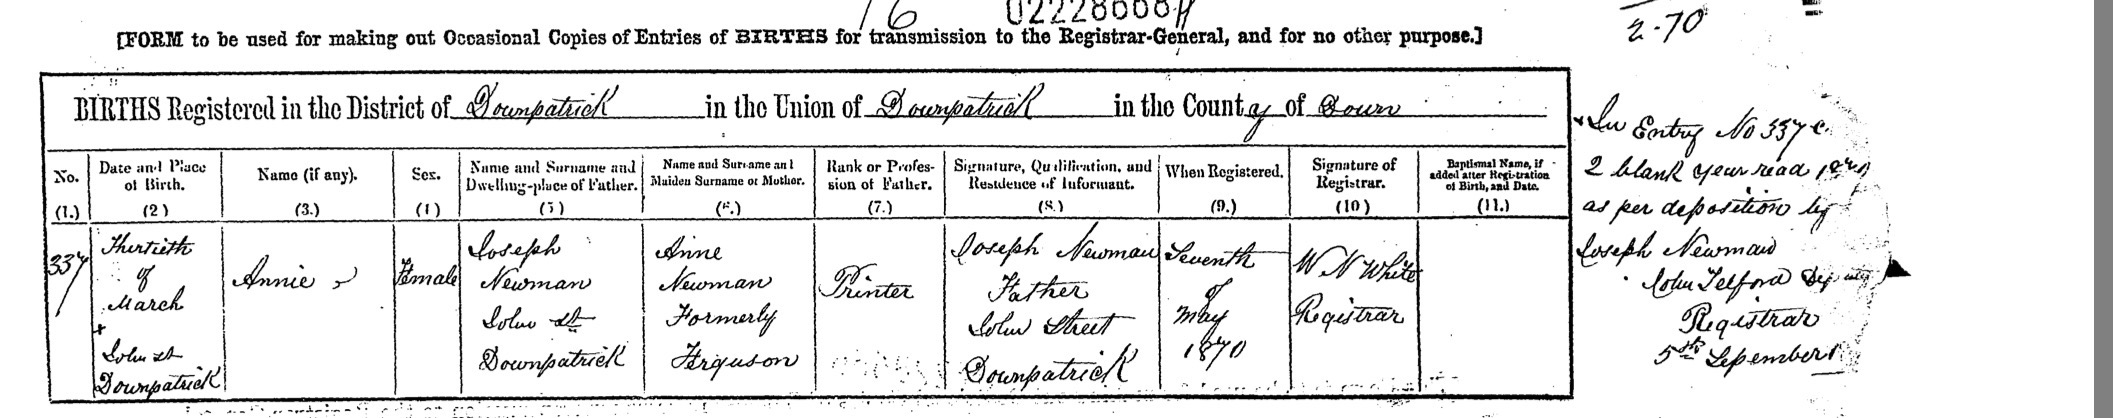 16 02228668
2.70
[FORM to be used for making out Occasional Copies of Entries of BIRTHS for transmission to the Registrar-General, and for no other purpose.]
BIRTHS Registered in the District of Downpatrick in the Union of Downpatrick in the County of Down
No. (1.)
Date and Place of Birth. (2)
Name (if any). (3.)
Sex. (4)
Name and Surname and Dwelling-place of Father. (5)
Name and Surname and Maiden Surname of Mother. (6.)
Rank or Profession of Father. (7.)
Signature, Qualification, and Residence of Informant. (8.)
When Registered. (9.)
Signature of Registrar. (10)
Baptismal Name, if added after Registration of Birth, and Date. (11.)
337
Thirtieth
of
March
+
John St
Downpatrick
Annie
Female
Joseph
Newman
John St
Downpatrick
Anne
Newman
Formerly
Ferguson
Printer
Joseph Newman
Father
John Street
Downpatrick
Seventh
of
May
1870
W N White
Registrar
+ In Entry No 337 C.
2 blank year read 1870
as per deposition by
Joseph Newman
John Telford Deputy
Registrar
5th September